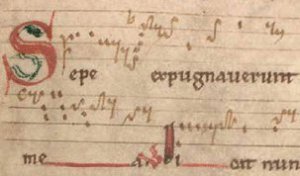 Sepe expugnauerunt
me a. Di cat nun